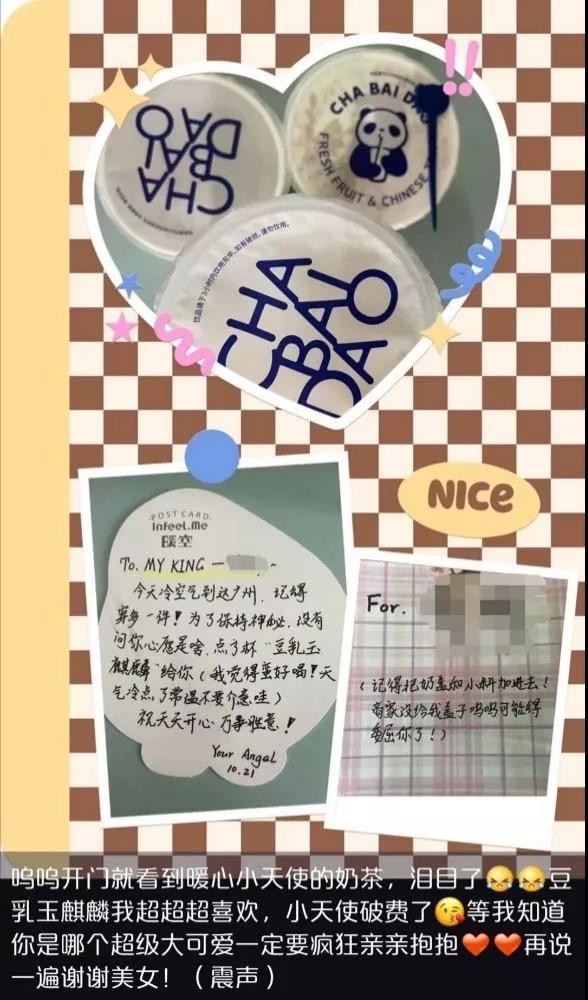 CHA
BAI
DAO
CHA BAI DAO
FRESH FRUIT & CHINESE
饮品请于3小时内饮用完毕,如有破损,请勿饮用。
CHA
BAI
DAO
!!
NICE
POST CARD
Infeel.Me
暖空
To. MY KING — ~
今天冷空气到达广州,记得
穿多一件!为了保持神秘,没有
问你心愿是啥,点了杯"豆乳玉
麒麟"给你(我觉得蛮好喝!天
气冷点了常温不要介意哇)
祝天天开心 万事胜意!
Your Angel
10.21
For.
(记得把奶盖和小料加进去!
商家没给我盖子呜呜可能得
委屈你了!)
呜呜开门就看到暖心小天使的奶茶,泪目了😭😭豆
乳玉麒麟我超超超喜欢,小天使破费了😘等我知道
你是哪个超级大可爱一定要疯狂亲亲抱抱❤️❤️再说
一遍谢谢美女!(震声)